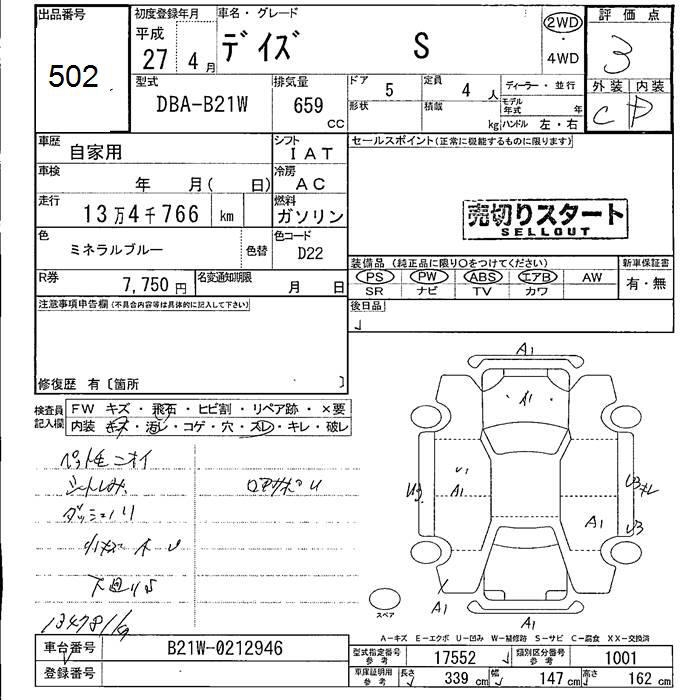 出品番号
502
初度登録年月
平成
27 年 4 月
車名・グレード
デイズ S
2WD
・
4WD
評価点
3
外装 内装
C D
型式
DBA-B21W
排気量
659
CC
ドア
5
定員
4 人
形状
積載
kg
ディーラー・並行
モデル年式 年
ハンドル 左・右
車歴
自家用
シフト
IAT
車検
年 月( 日)
冷房
AC
走行
13万4千766 km
燃料
ガソリン
色
ミネラルブルー
色替
色コード
D22
R券
7,750 円
名変通知期限
月 日
セールスポイント(正常に機能するものに限ります)
売切りスタート
SELLOUT
装備品(純正品に限り○をつけてください)
新車保証書
PS PW ABS エアB AW
有・無
SR ナビ TV カワ
後日品
注意事項申告欄(不具合内容等は具体的に記入して下さい)
修復歴 有〔箇所 〕
検査員
記入欄
FW キズ・飛石・ヒビ割・リペア跡・×要
内装 キズ・汚レ・コゲ・穴・スレ・キレ・破レ
ペット毛 ニオイ
シートしみ
ダッシュ
下廻りS
A1
A1
U1
A1
A1
U3
A1
A1
スペア
A-キズ E-エクボ U-凹み W-補修跡 S-サビ C-腐食 XX-交換済
車台番号
B21W-0212946
登録番号
型式指定番号
参考
17552
類別区分番号
参考
1001
車庫証明用
参考
長さ
339 cm
幅
147 cm
高さ
162 cm